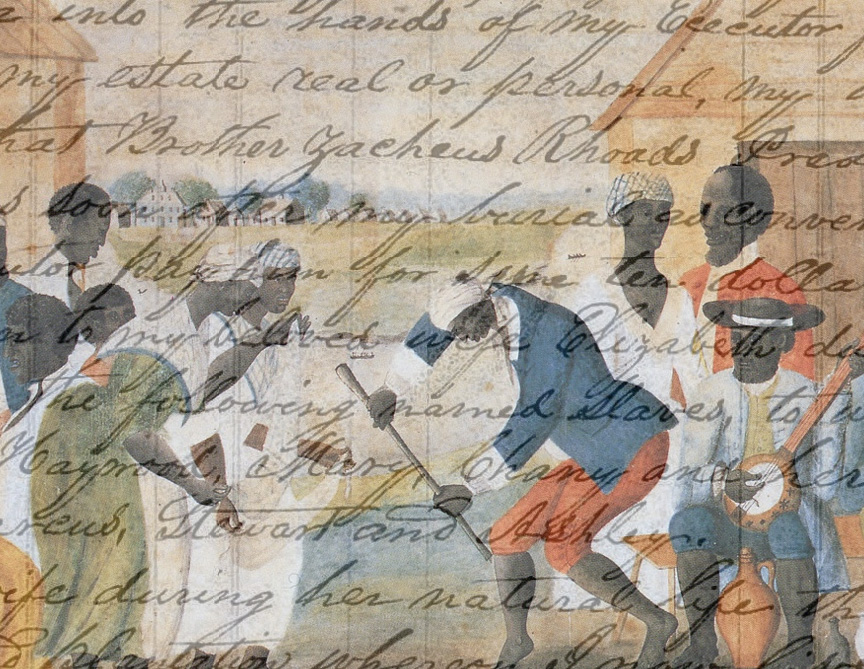 into the hands of my Executor
my estate real or personal, my
that Brother Zacheus Rhoads
soon after my burial as conven
for some ten dolla
to my beloved wife Elizabeth du
the following named Slaves, to w
Haywood, Mary, Chany and her
ercus, Stewart and Ashley.
ife during her natural life th
plantation whereon I